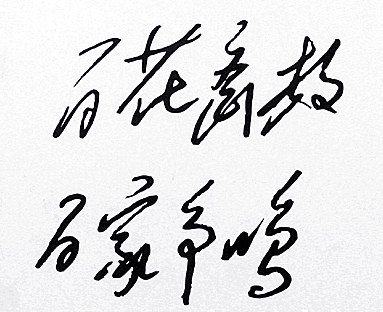 百花齊放
百家争鸣